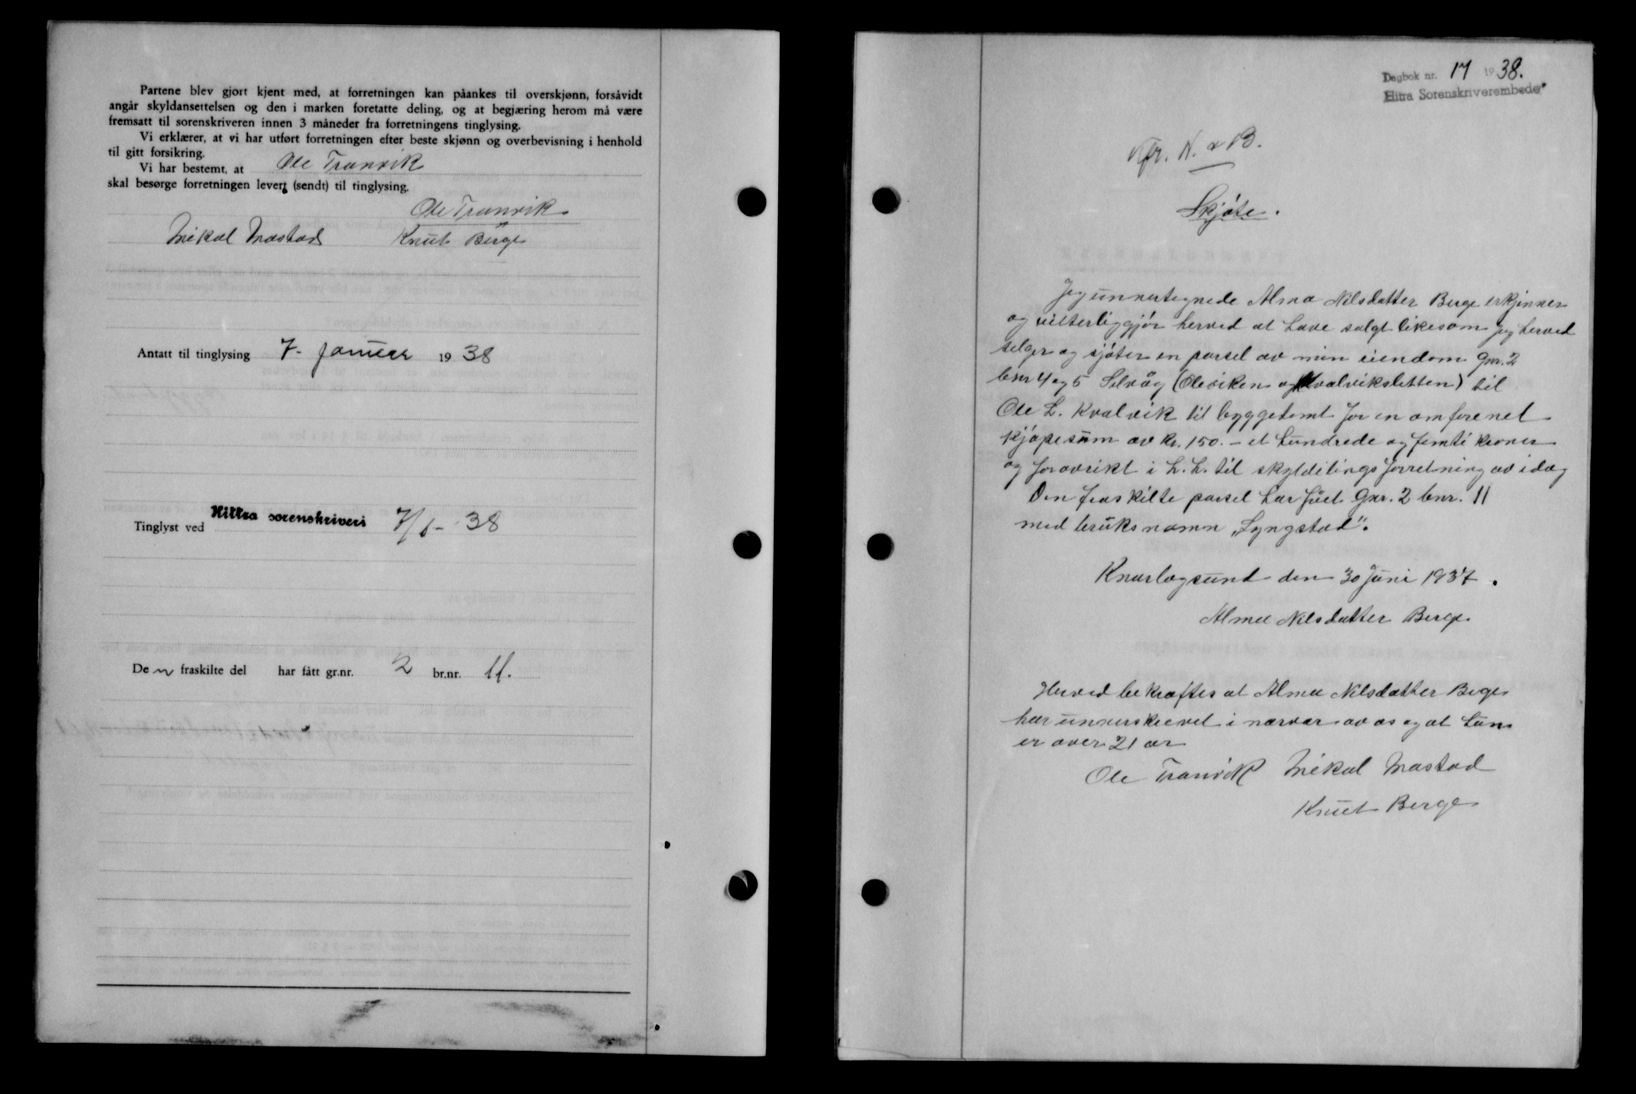 Partene blev gjort kjent med, at forretningen kan påankes til overskjønn, forsåvidt
angår skyldansettelsen og den i marken foretatte deling, og at begjæring herom må være
fremsatt til sorenskriveren innen 3 måneder fra forretningens tinglysing.
Vi erklærer, at vi har utført forretningen efter beste skjønn og overbevisning i henhold
til gitt forsikring.
Vi har bestemt, at Ole Tranvik
skal besørge forretningen levert (sendt) til tinglysing.
Ole Tranvik
Mikal Mastad Knut Berge
Antatt til tinglysing 7. januar 1938
Tinglyst ved Hitra sorenskriveri 7/1-38
De n fraskilte del har fått gr.nr. 2 br.nr. 11.
Dagbok nr. 17 1938.
Hitra Sorenskriverembede
Skjøte.
Jeg unnertegnede Alma Nilsdatter Berge erkjenner
og vitterliggjør herved at have solgt likesom jeg herved
selger og sjøter en parsel av min eiendom gnr. 2
bnr 4 og 5 Selvåg (Oleviken og Kvalviksletten) til
Ole L. Kvalvik til byggetomt for en omforenet
kjøpesum av kr. 150.- et hundrede og femti kroner
og forøvrikt i h.h. til skyldelingsforretning av idag
Den fraskilte parsel har fået gnr. 2 bnr. 11
med bruksnamn „Lyngstad".
Knarlagsund den 30 Juni 1937.
Alma Nilsdatter Berge
Herved bekræftes at Alma Nilsdatter Berge
har unnerskrevet i nærvær av os og at hun
er over 21 år
Ole Tranvik Mikal Mastad
Knut Berge